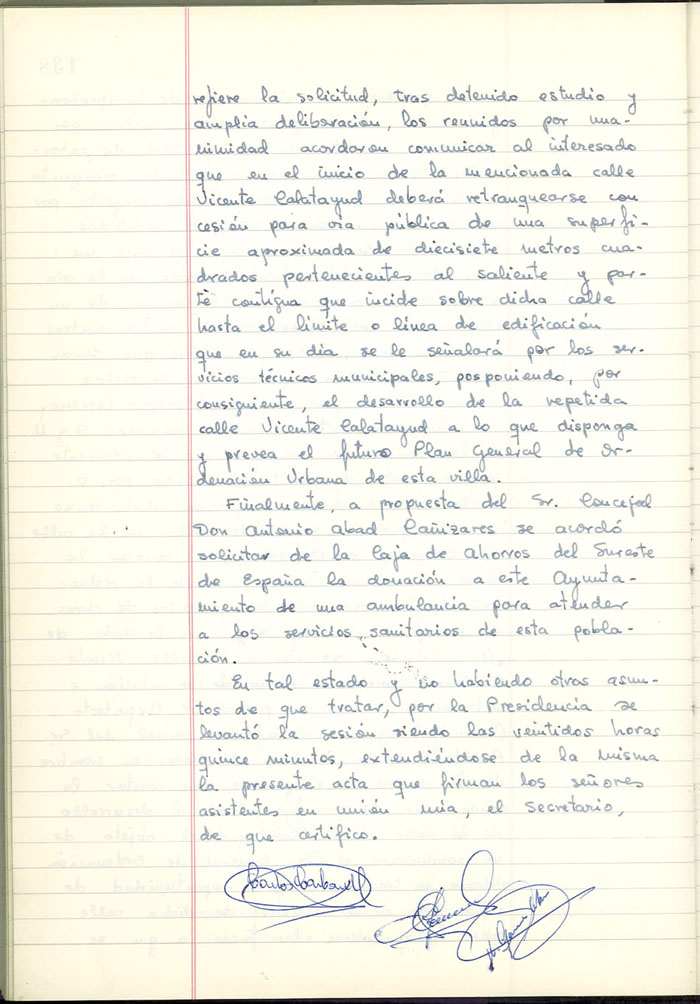 refiere la solicitud, tras detenido estudio y
amplia deliberación, los reunidos por una-
nimidad acordaron comunicar al interesado
que en el inicio de la mencionada calle
Vicente Calatayud deberá retranquearse con
cesión para via pública de una superfi-
cie aproximada de diecisiete metros cua-
drados pertenecientes al saliente y par-
te contigua que incide sobre dicha calle
hasta el límite o línea de edificación
que en su día se le señalará por los ser-
vicios técnicos municipales, posponiendo, por
consiguiente, el desarrollo de la repetida
calle Vicente Calatayud a lo que disponga
y prevea el futuro Plan General de Or-
denación Urbana de esta villa.
Finalmente, a propuesta del Sr. Concejal
Don Antonio Abad Cañizares se acordó
solicitar de la Caja de Ahorros del Sureste
de España la donación a este Ayunta-
miento de una ambulancia para atender
a los servicios sanitarios de esta pobla-
ción.
En tal estado y no habiendo otros asun-
tos de que tratar, por la Presidencia se
levantó la sesión siendo las veintidos horas
quince minutos, extendiéndose de la misma
la presente acta que firman los señores
asistentes en unión mía, el Secretario,
de que certifico.